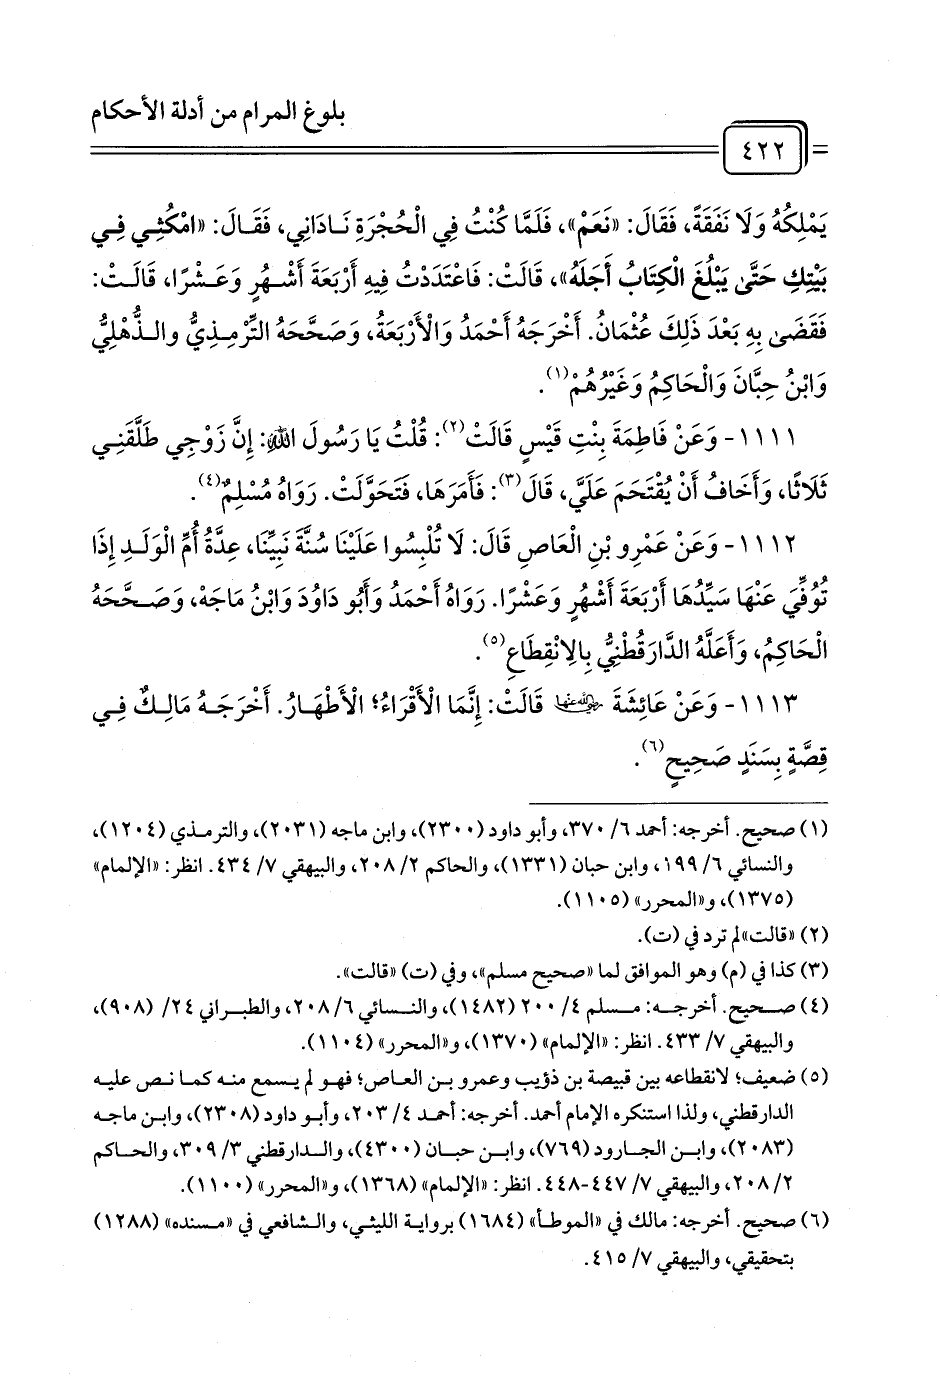 بلوغ المرام من أدلة الأحكام
٤٢٢
يَمْلِكُهُ وَلَا نَفَقَةً، فَقَالَ: «نَعَمْ»، فَلَمَّا كُنْتُ فِي الْحُجْرَةِ نَادَانِي، فَقَالَ: «امْكُثِي فِي
بَيْتِكِ حَتَّى يَبْلُغَ الْكِتَابُ أَجَلَهُ»، قَالَتْ: فَاعْتَدَدْتُ فِيهِ أَرْبَعَةَ أَشْهُرٍ وَعَشْرًا، قَالَتْ:
فَقَضَى بِهِ بَعْدَ ذَلِكَ عُثْمَانُ. أَخْرَجَهُ أَحْمَدُ وَالْأَرْبَعَةُ، وَصَحَّحَهُ التِّرْمِذِيُّ والذُّهْلِيُّ
وَابْنُ حِبَّانَ وَالْحَاكِمُ وَغَيْرُهُمْ(١).
١١١١- وَعَنْ فَاطِمَةَ بِنْتِ قَيْسٍ قَالَتْ(٢): قُلْتُ يَا رَسُولَ اللهِ: إِنَّ زَوْجِي طَلَّقَنِي
ثَلَاثًا، وَأَخَافُ أَنْ يُقْتَحَمَ عَلَيَّ، قَالَ(٣): فَأَمَرَهَا، فَتَحَوَّلَتْ. رَوَاهُ مُسْلِمٌ(٤).
١١١٢- وَعَنْ عَمْرِو بْنِ الْعَاصِ قَالَ: لَا تُلْبِسُوا عَلَيْنَا سُنَّةَ نَبِيِّنَا، عِدَّةُ أُمِّ الْوَلَدِ إِذَا
تُوُفِّيَ عَنْهَا سَيِّدُهَا أَرْبَعَةَ أَشْهُرٍ وَعَشْرًا. رَوَاهُ أَحْمَدُ وَأَبُو دَاوُدَ وَابْنُ مَاجَهْ، وَصَحَّحَهُ
الْحَاكِمُ، وَأَعَلَّهُ الدَّارَقُطْنِيُّ بِالِانْقِطَاعِ(٥).
١١١٣- وَعَنْ عَائِشَةَ رضي الله عنها قَالَتْ: إِنَّمَا الْأَقْرَاءُ؛ الْأَطْهَارُ. أَخْرَجَهُ مَالِكٌ فِي
قِصَّةٍ بِسَنَدٍ صَحِيحٍ(٦).
(١) صحيح. أخرجه: أحمد ٦/ ٣٧٠، وأبو داود (٢٣٠٠)، وابن ماجه (٢٠٣١)، والترمذي (١٢٠٤)،
والنسائي ٦/ ١٩٩، وابن حبان (١٣٣١)، والحاكم ٢/ ٢٠٨، والبيهقي ٧/ ٤٣٤. انظر: «الإلمام»
(١٣٧٥)، و«المحرر» (١١٠٥).
(٢) «قالت»لم ترد في (ت).
(٣) كذا في (م) وهو الموافق لما «صحيح مسلم»، وفي (ت) «قالت».
(٤) صحيح. أخرجه: مسلم ٤/ ٢٠٠ (١٤٨٢)، والنسائي ٦/ ٢٠٨، والطبراني ٢٤/ (٩٠٨)،
والبيهقي ٧/ ٤٣٣. انظر: «الإلمام» (١٣٧٠)، و«المحرر» (١١٠٤).
(٥) ضعيف؛ لانقطاعه بين قبيصة بن ذؤيب وعمرو بن العاص؛ فهو لم يسمع منه كما نص عليه
الدارقطني، ولذا استنكره الإمام أحمد. أخرجه: أحمد ٤/ ٢٠٣، وأبو داود (٢٣٠٨)، وابن ماجه
(٢٠٨٣)، وابن الجارود (٧٦٩)، وابن حبان (٤٣٠٠)، والدارقطني ٣/ ٣٠٩، والحاكم
٢/ ٢٠٨، والبيهقي ٧/ ٤٤٧-٤٤٨. انظر: «الإلمام» (١٣٦٨)، و«المحرر» (١١٠٠).
(٦) صحيح. أخرجه: مالك في «الموطأ» (١٦٨٤) برواية الليثي، والشافعي في «مسنده» (١٢٨٨)
بتحقيقي، والبيهقي ٧/ ٤١٥.